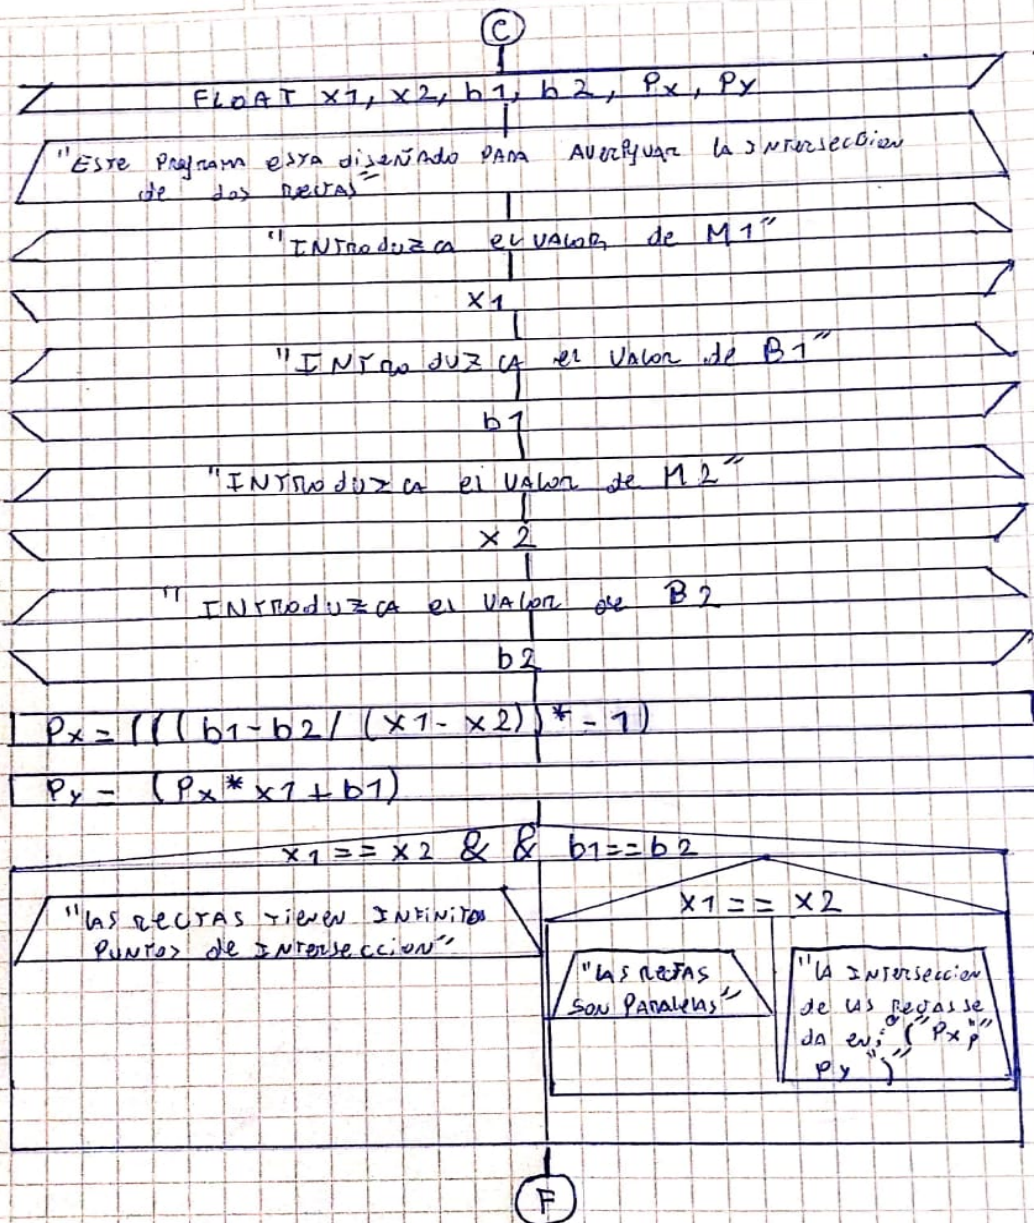 C
FLOAT x1, x2, b1, b2, Px, Py
"ESTE Program esta diseñado PARA AVERIGUAR LA INTERSECCION
de dos RECTAS"
"INTRODUZCA el VALOR de M1"
x1
"INTRODUZCA el VALOR de B1"
b1
"INTRODUZCA el VALOR de M2"
x2
"INTRODUZCA el VALOR de B2
b2
Px = (((b1-b2/(x1-x2))*-1)
Py = (Px*x1+b1)
x1 == x2 && b1==b2
"LAS RECTAS TIENEN INFINITOS
PUNTOS de INTERSECCION"
x1 == x2
"LAS RECTAS
SON PARALELAS"
"LA INTERSECCION
de LAS RECTAS SE
DA EN: "("Px","
Py")"
F